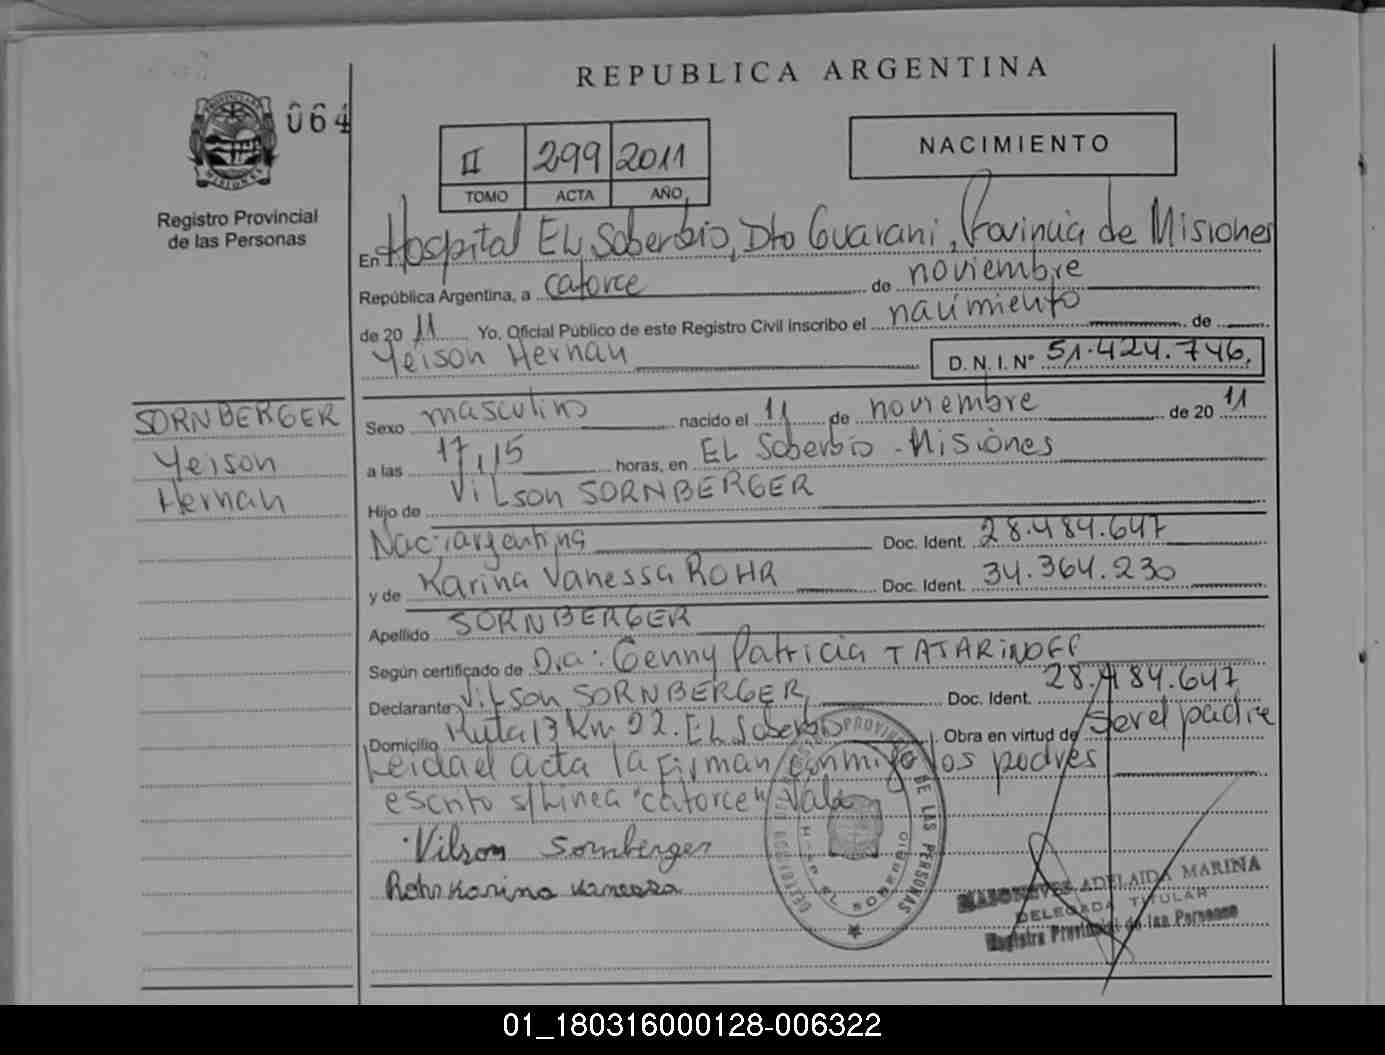 REPUBLICA ARGENTINA
064
Registro Provincial
de las Personas
II 299 2011
TOMO ACTA AÑO
NACIMIENTO
En Hospital EL Soberbio, Dto Guarani, Provincia de Misiones
República Argentina, a catorce de noviembre
de 20 11 Yo, Oficial Público de este Registro Civil inscribo el nacimiento de
Yeison Hernan D. N. I. Nº 51.424.746.
SORNBERGER
Yeison
Hernan
Sexo masculino nacido el 11 de noviembre de 20 11
a las 17,15 horas, en EL Soberbio - Misiones
Hijo de Vilson SORNBERGER
Nac: argentina Doc. Ident. 28.484.647
y de Karina Vanessa ROHR Doc. Ident. 34.364.230
Apellido SORNBERGER
Según certificado de Dra: Genny Patricia TATARINOFF
Declarante Vilson SORNBERGER Doc. Ident. 28.484.647
Domicilio Ruta 13 Km 22. EL Soberbio Obra en virtud de ser el padre
Leida el acta la firman conmigo los padres
escrito s/Linea "catorce" Vale
Vilson Sornberger
Rohr Karina Vanessa
PROVINCIAL DE LAS PERSONAS
ADELAIDA MARINA
DELEGADA TITULAR
Registro Provincial de las Personas
01_180316000128-006322